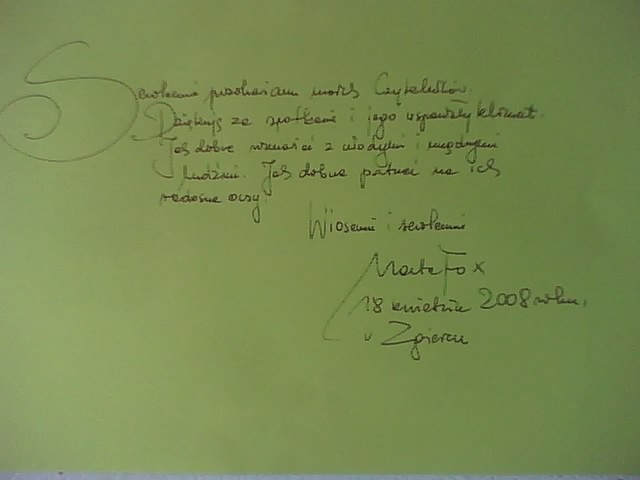 Serdecznie pozdrawiam moich Czytelników.
Dziękuję za spotkanie i jego wspaniały klimat.
Jak dobrze wzrastać z młodymi i mądrymi
ludźmi. Jak dobrze patrzeć na ich
radosne oczy.
Wiosennie i serdecznie
Marta Fox
18 kwietnia 2008 roku,
w Zgierzu